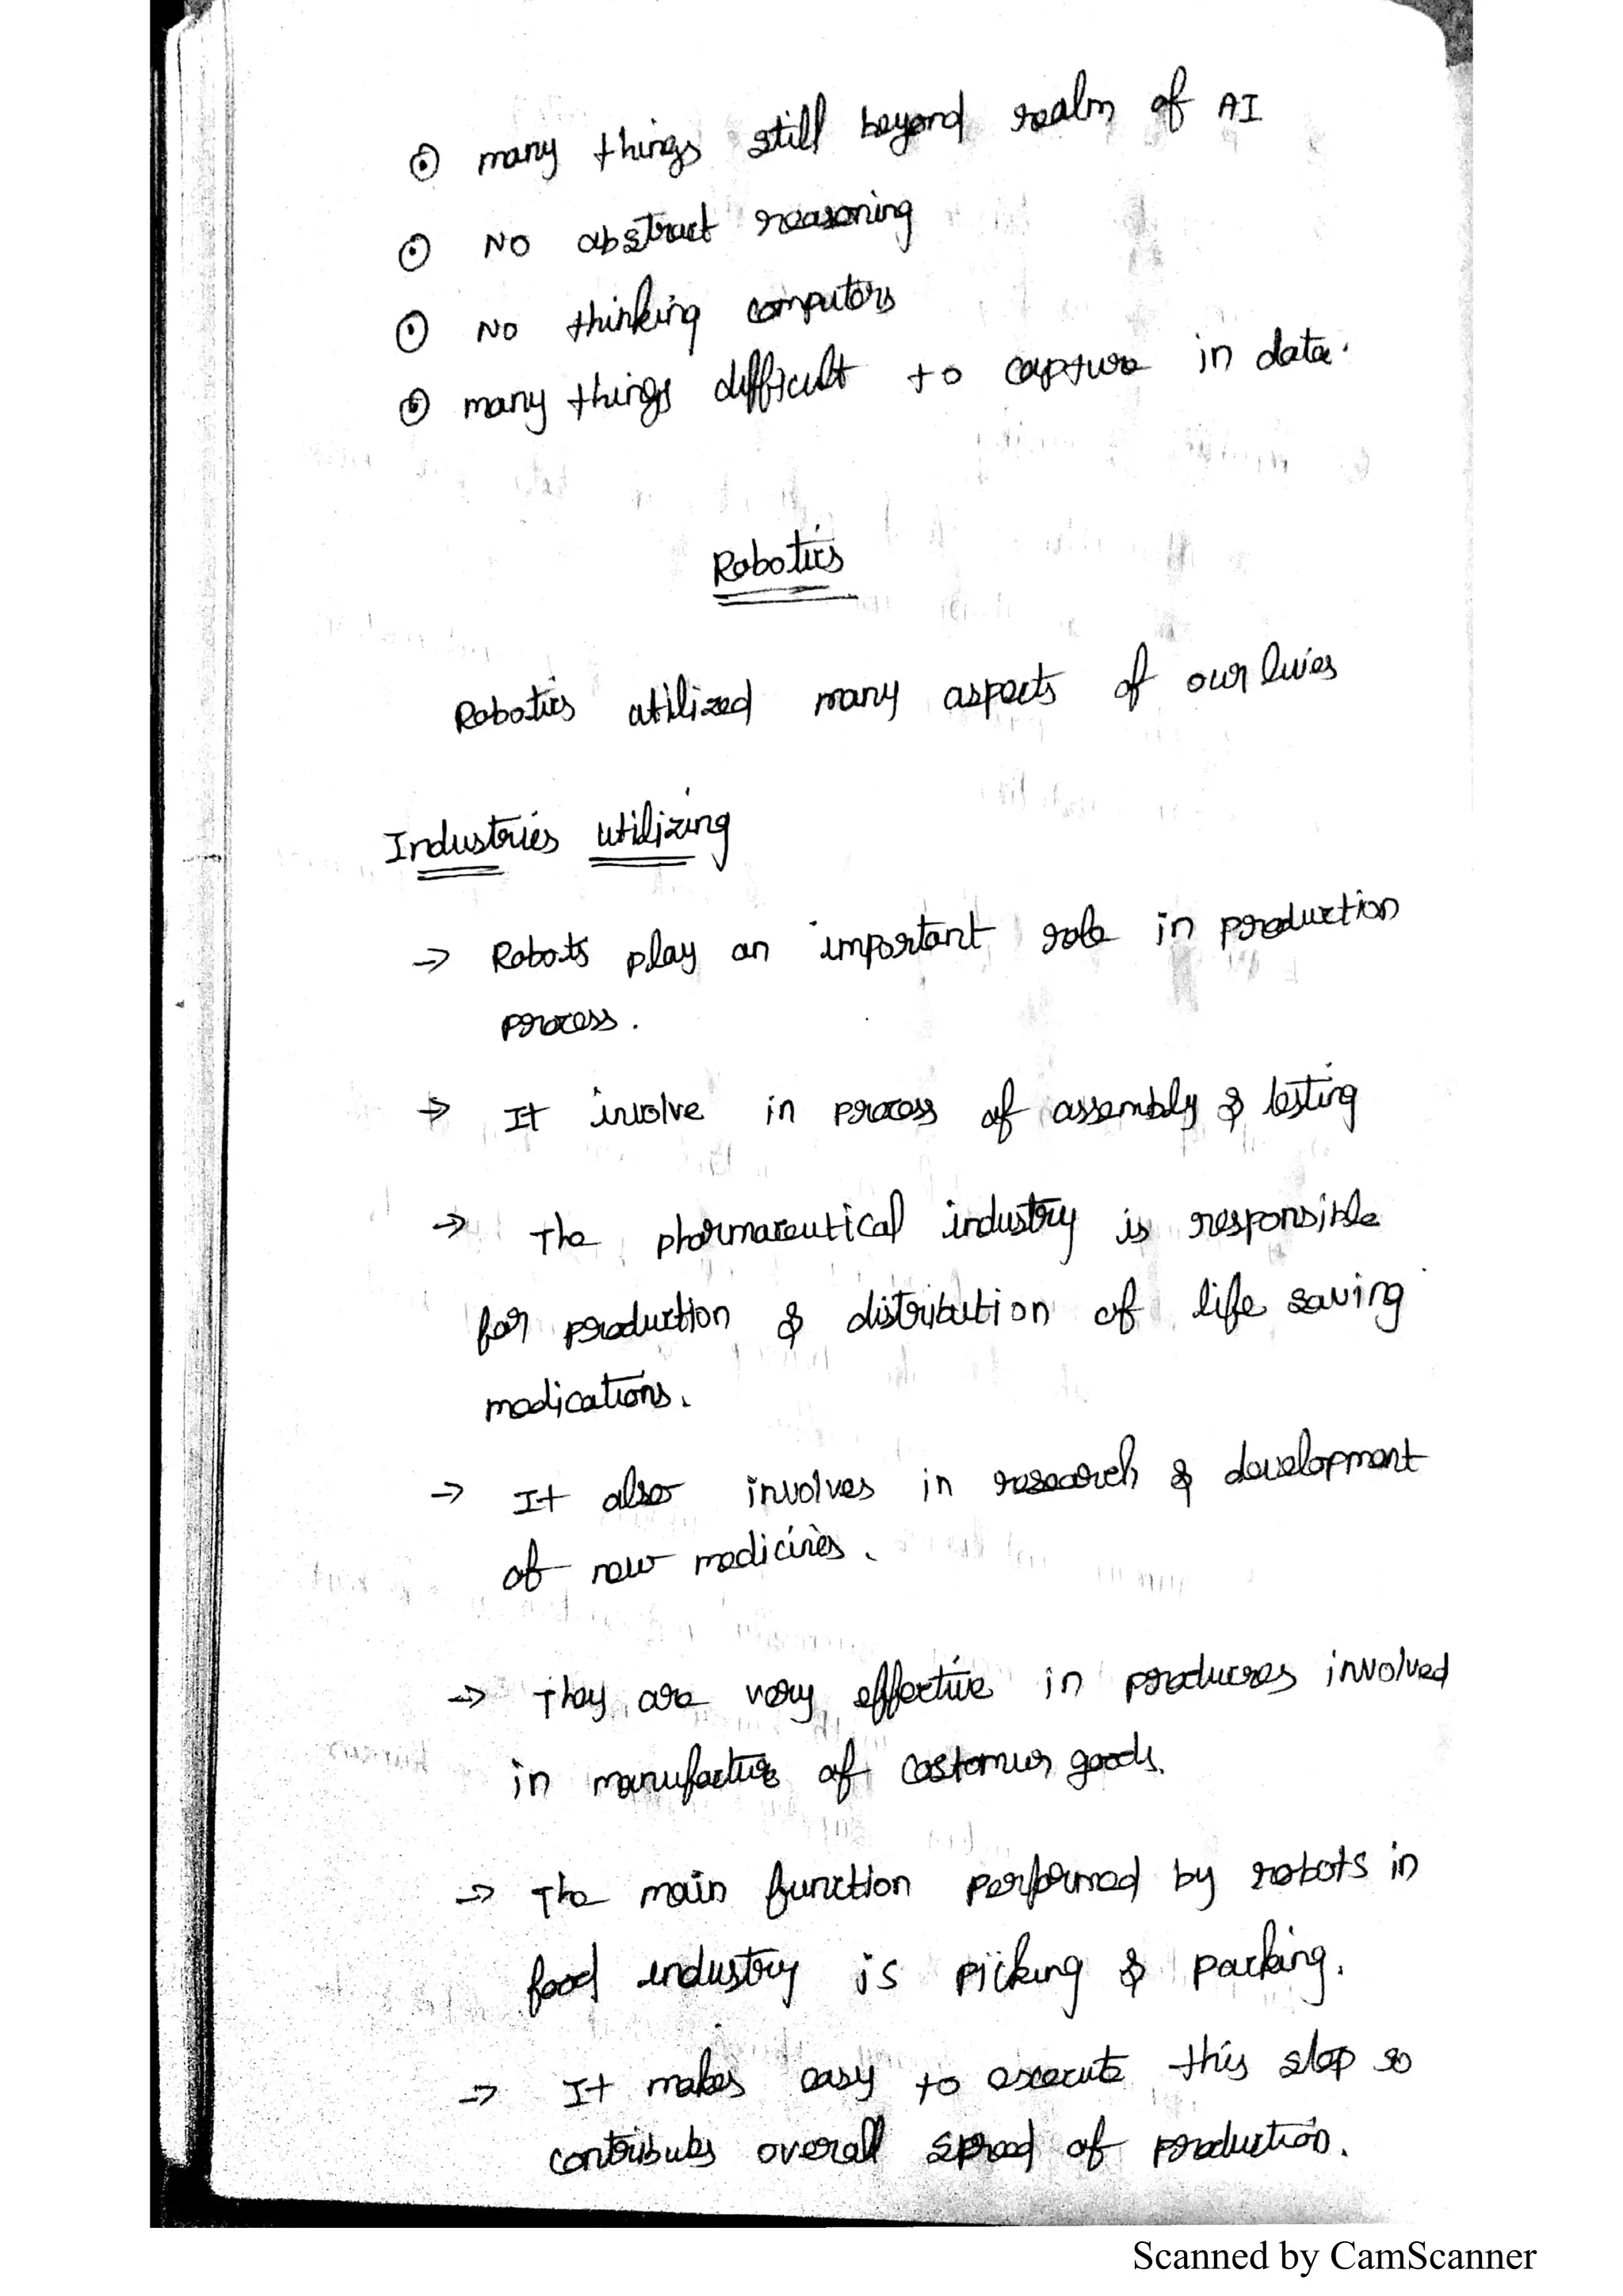 ⊙ many things still beyond realm of AI
⊙ NO abstract reasoning
⊙ NO thinking computers
⊙ many things difficult to capture in data.
Robotics
Robotics utilized many aspects of our lives
Industries utilizing
→ Robots play an important role in production
process.
→ It involve in process of assembly & testing
→ The pharmaceutical industry is responsible
for production & distribution of life saving
medications.
→ It also involves in research & development
of new medicines.
→ They are very effective in producres involved
in manufacture of costomur goods.
→ The main function performed by robots in
food industry is picking & packing.
→ It makes easy to execute this step so
contributs overall speed of production.
Scanned by CamScanner